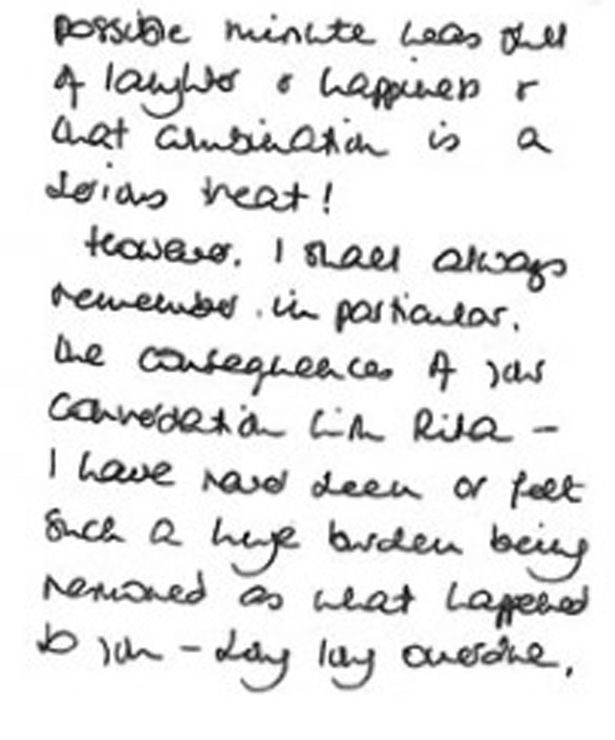 possible minute was full
of laughter & happiness &
that combination is a
serious treat!
However, I shall always
remember, in particular,
the consequences of your
conversation with Rita –
I have never seen or felt
such a huge burden being
removed as what happened
to you – long long overdue.